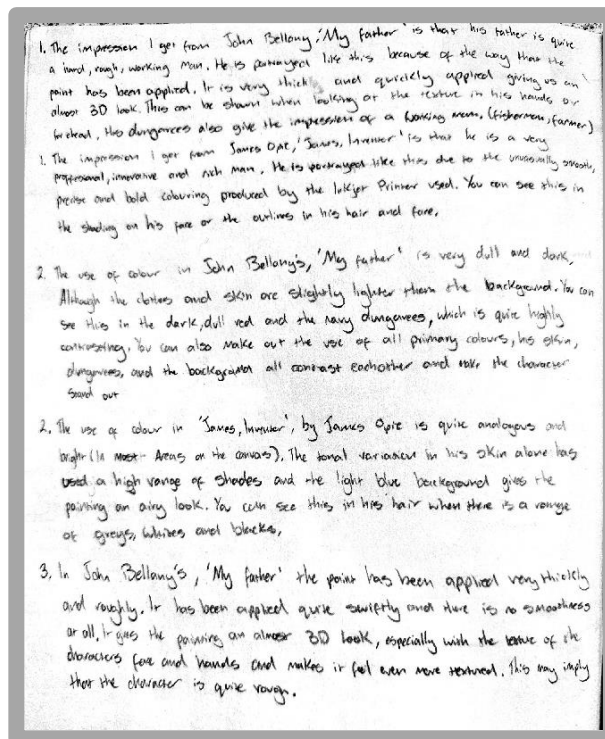 1. The impression I get from John Bellany, 'My father' is that his father is quite
a hard, rough, working man. He is portrayed like this because of the way that the
paint has been applied. It is very thick and quickly applied giving us an
almost 3D look. This can be shown when looking at the texture in his hands or
forehead. His dungarees also give the impression of a working man. (fisherman, farmer)
1. The impression I get from James Opie, 'James, Inventor' is that he is a very
proffesional, innovative and rich man. He is portrayed like this due to the unusually smooth,
precise and bold colouring produced by the Inkjet Printer used. You can see this in
the shading on his face or the outlines in his hair and face.
2. The use of colour in John Bellany's, 'My father' is very dull and dark,
Although the clothes and skin are slightly lighter than the background. You can
see this in the dark, dull red and the navy dungarees, which is quite highly
contrasting. You can also make out the use of all primary colours, his skin,
dungarees, and the background all contrast eachother and make the character
stand out
2. The use of colour in 'James, Inventor', by James Opie is quite analogous and
bright (In most Areas on the canvas). The tonal variation in his skin alone has
used a high range of shades and the light blue background gives the
painting an airy look. You can see this in his hair when there is a range
of greys, whites and blacks.
3. In John Bellany's, 'My father' the paint has been applied very thickly
and roughly. It has been applied quite swiftly and there is no smoothness
at all. It gives the painting an almost 3D look, especially with the texture of the
characters face and hands and makes it feel even more textured. This may imply
that the character is quite rough.